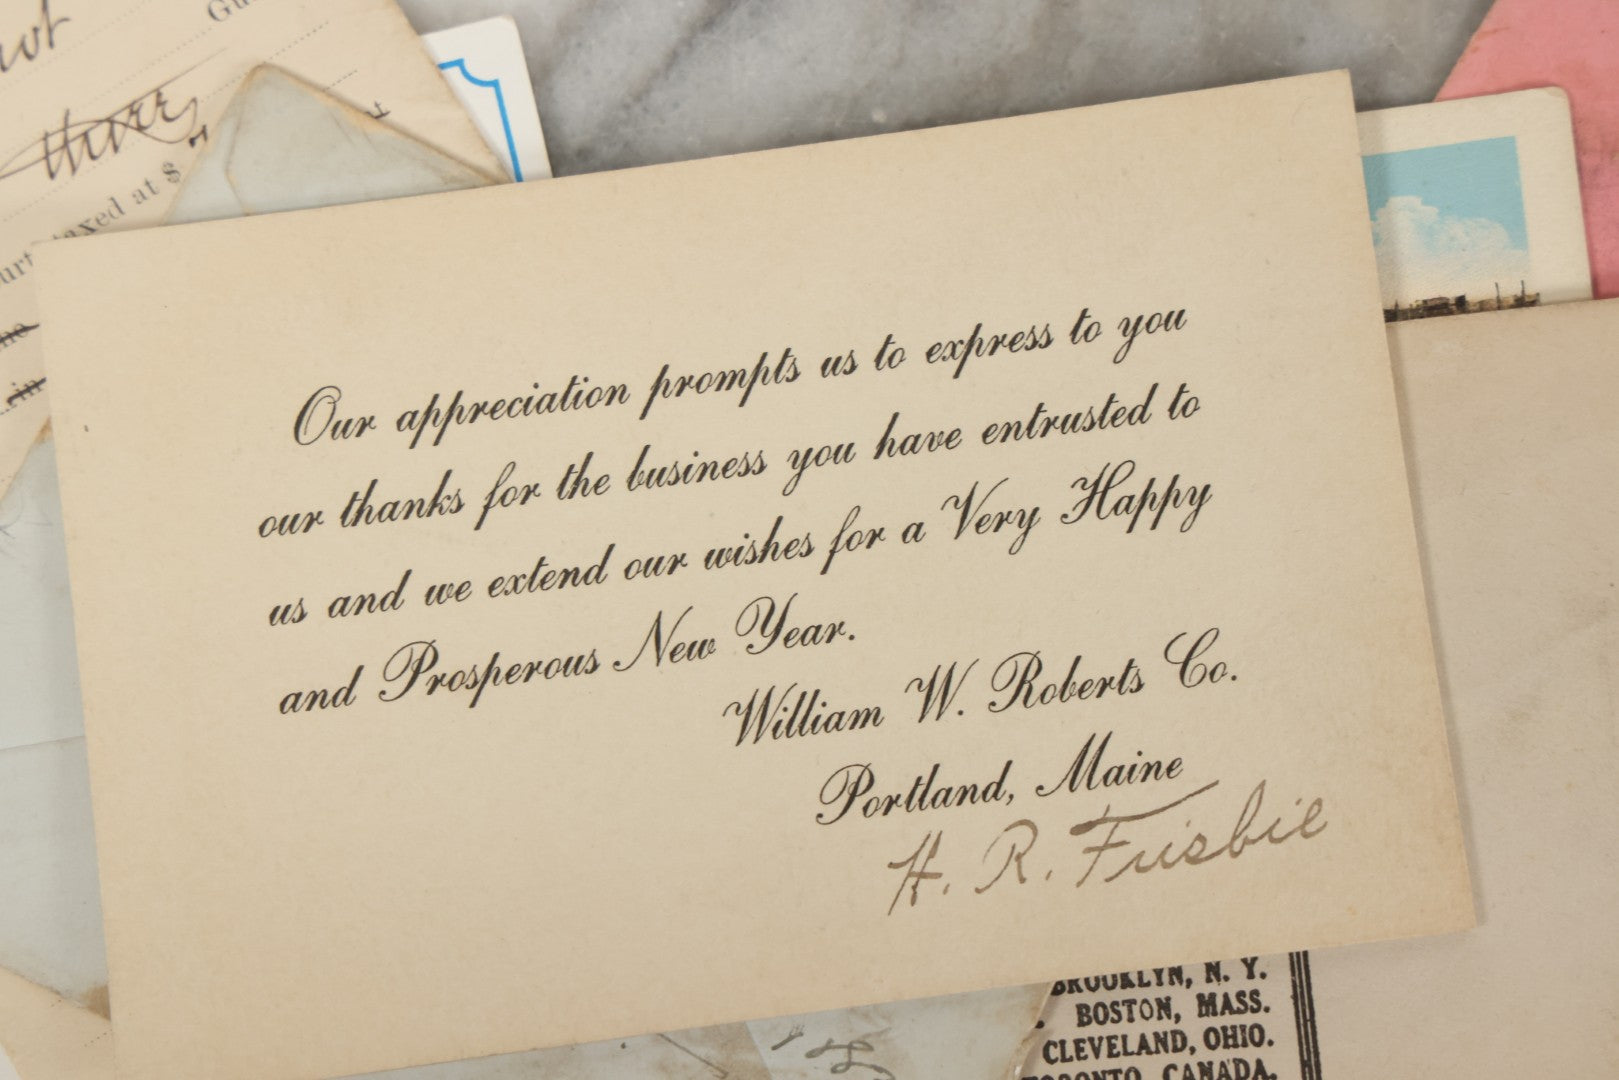 Gu
not
taxed at $
Our appreciation prompts us to express to you
our thanks for the business you have entrusted to
us and we extend our wishes for a Very Happy
and Prosperous New Year.
William W. Roberts Co.
Portland, Maine
H. R. Frisbie
BROOKLYN, N. Y.
BOSTON, MASS.
CLEVELAND, OHIO.
TORONTO, CANADA.